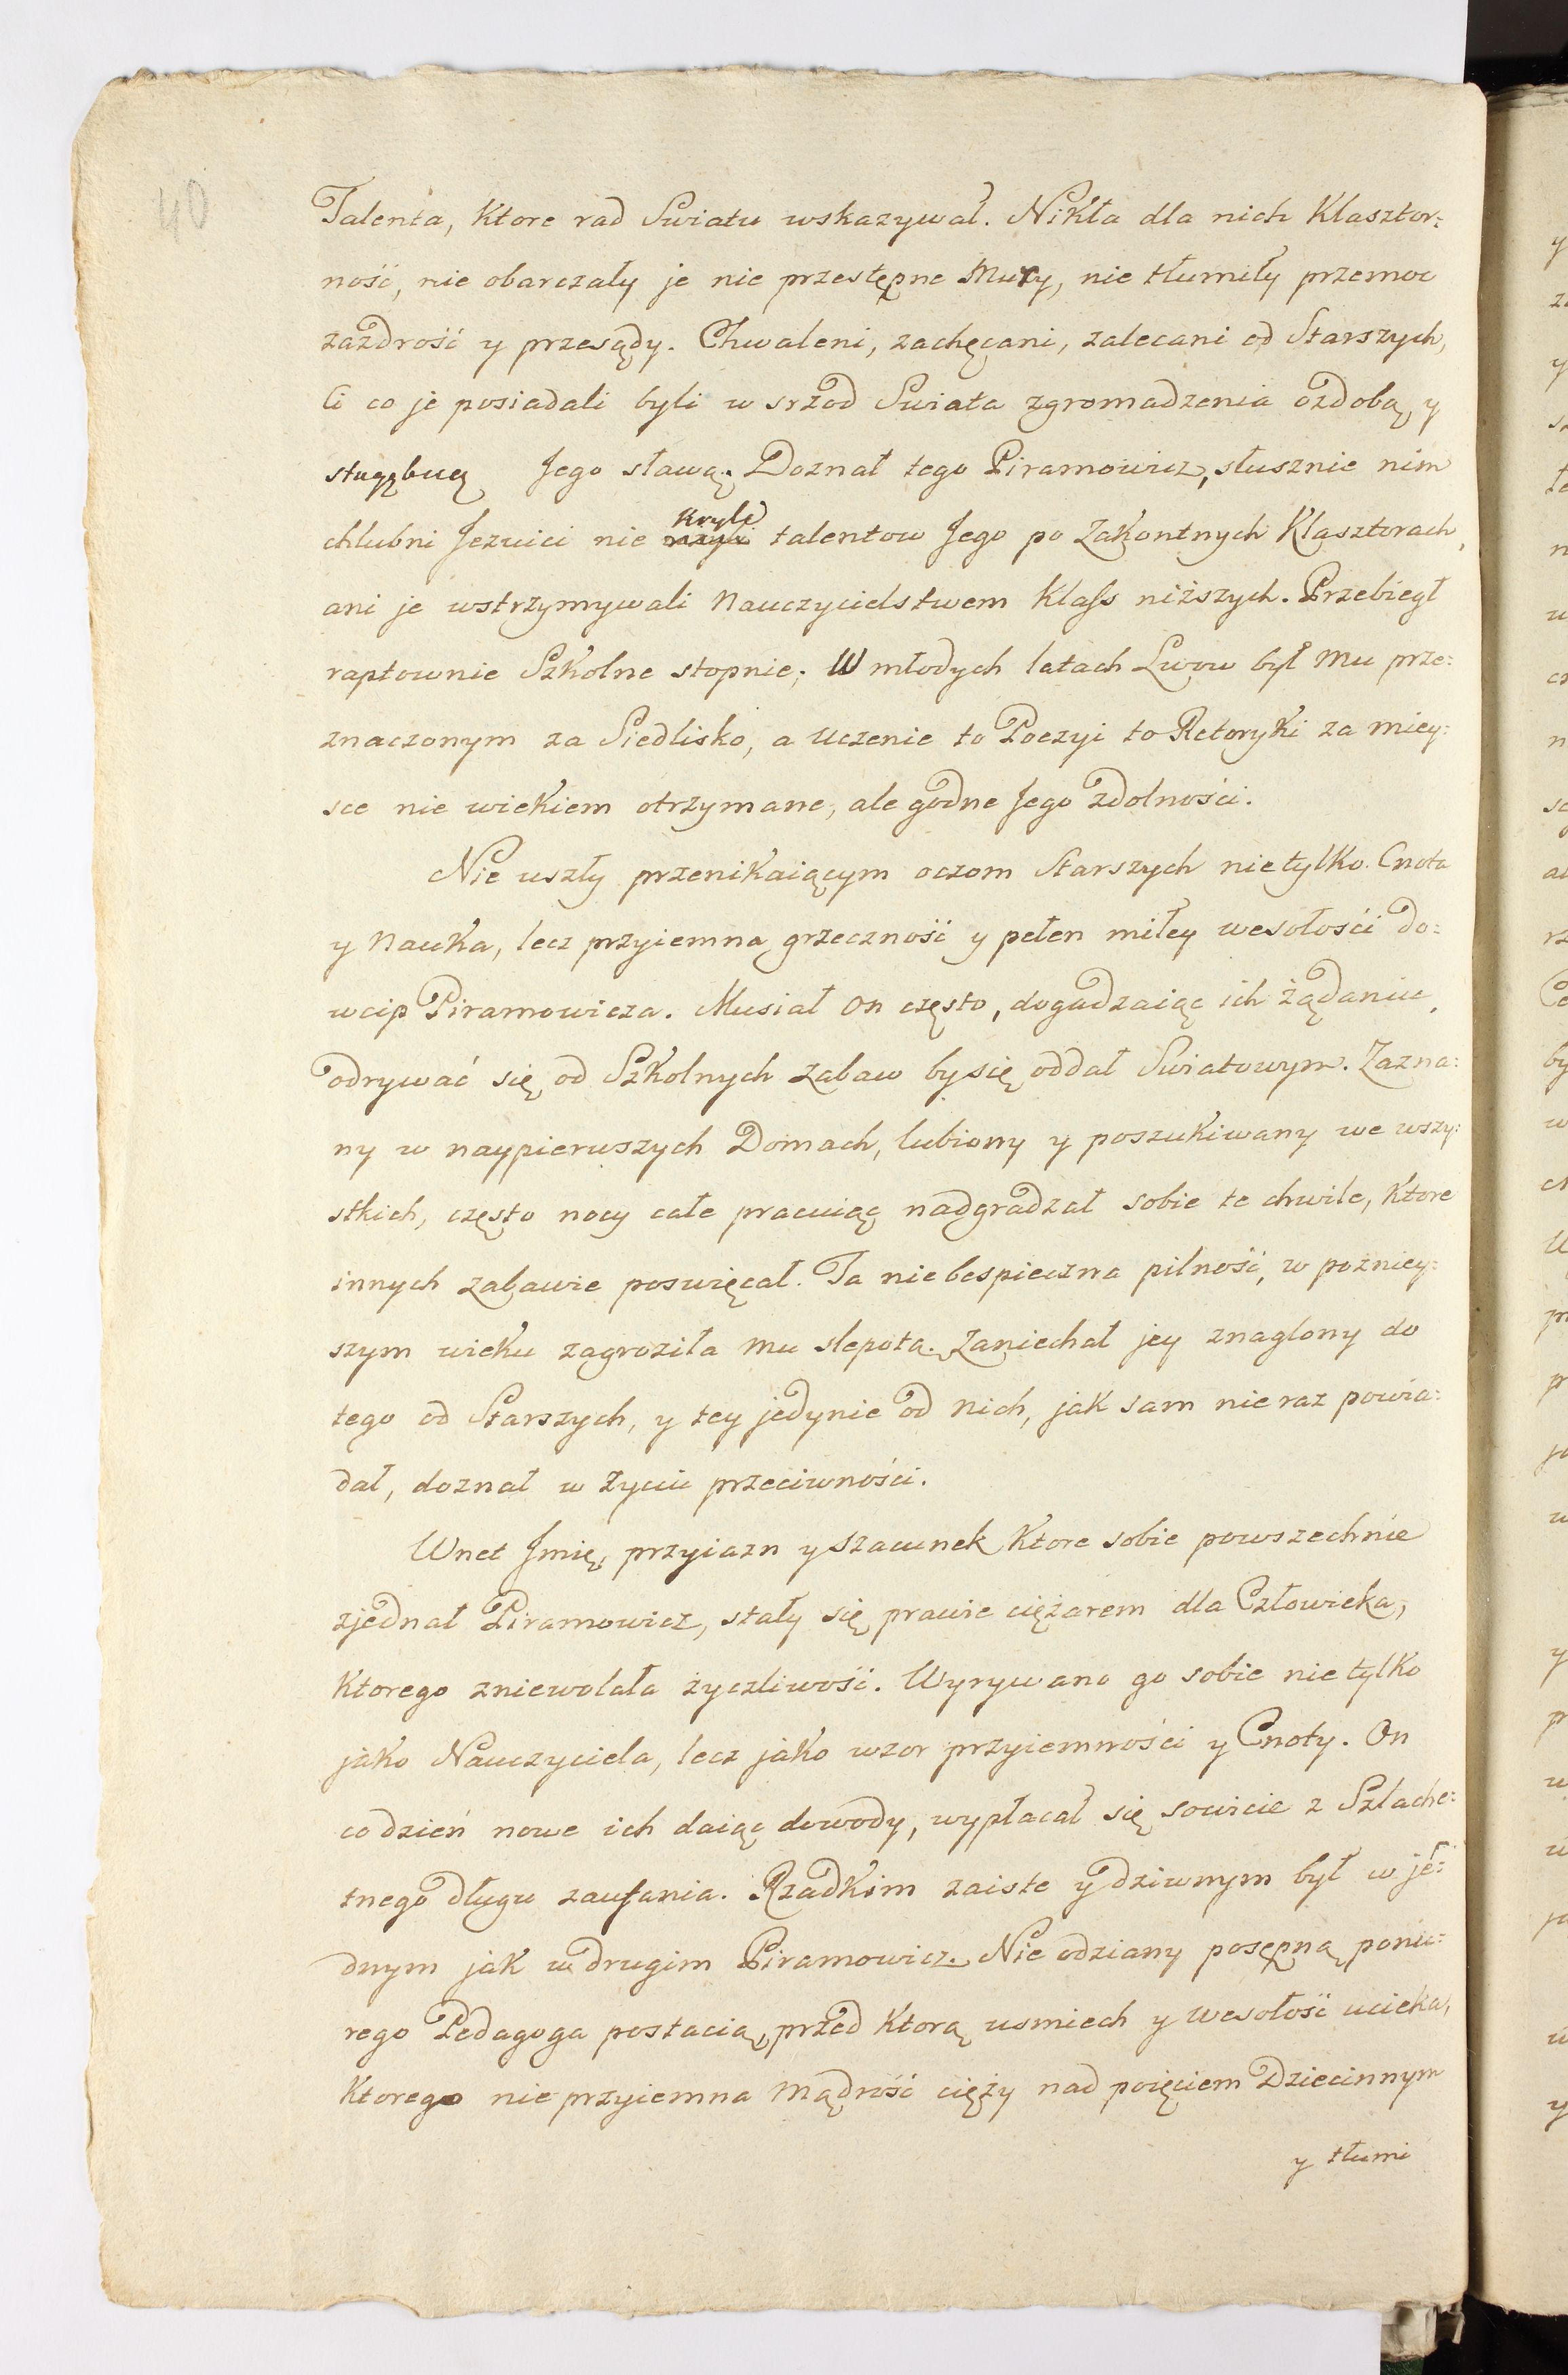 40
Talenta, Ktore rad Swiatu wskazywał. Nikła dla nich Klasztor:
ność, nie obarczały je nie przestępne Mury, nie tłumiły przemoc
zazdrość y przesądy. Chwaleni, zachęcani, zalecani od Starszych,
Ci co je posiadali byli w srzod Swiata zgromadzenia ozdobą, y
Jego sławą. Doznał tego Piramowicz, słusznie nim
Kryli
chlubni Jezuici nie talentow Jego po Zakontnych Klasztorach,
ani je wstrzymywali Nauczycielstwem Klass niższych. Przebiegł
raptownie Szkolne stopnie; W młodych latach Lwow był Mu prze:
znaczonym za Siedlisko, a Uczenie to Poezyi to Retoryki za miey:
sce nie wiekiem otrzymane, ale godne Jego zdolności.
Nie uszły przenikaiącym oczom Starszych nie tylko Cnota
y Nauka, lecz przyiemna grzeczność y pełen miłey wesołości do:
wcip Piramowicza. Musiał On często, dogadzaiąc ich żądaniu,
odrywać się od Szkolnych zabaw by się oddał Swiatowym. Zazna:
ny w naypierwszych Domach, lubiony y poszukiwany we wszy:
stkich, często nocy całe pracuiąc nadgradzał sobie te chwile, Ktore
innych zabawie poswięcał. Ta niebespieczna pilność, w pozniey:
szym wieku zagroziła Mu slepotą. Zaniechał jey znaglony do
tego od Starszych, y tey jedynie od Nich, jak sam nie raz powia:
dał, doznał w życiu przeciwności.
Wnet Jmię, przyiazn y szacunek Ktore sobie powszechnie
zjednał Piramowicz, stały się prawie ciężarem dla Człowieka,
Ktorego zniewolała życzliwość. Wyrywano go sobie nie tylko
jako Nauczyciela, lecz jako wzor przyiemności y Cnoty. On
co dzień nowe ich daiąc dowody, wypłacał się sowicie z Szlache:
tnego długu zaufania. Rzadkim zaiste y dziwnym był w je:
dnym jak w drugim Piramowicz. Nie odziany posępną ponu:
rego Pedagoga postacią, przed Ktorą usmiech y wesołość ucieka,
Ktorego nie przyiemna Mądrość cięży nad poięciem Dziecinnym
y tłumi